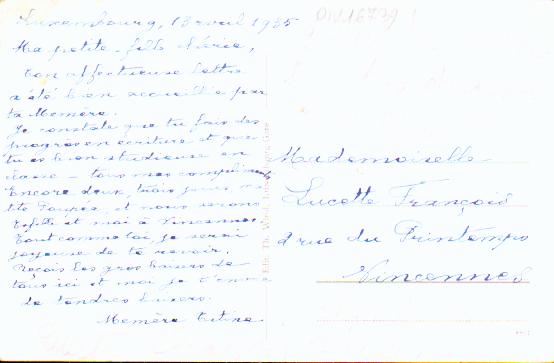 Luxembourg, 13 avril 1935
Ma petite fille chérie,
Ton affectueuse lettre
a été bien accueillie par
ta Memère.
Je constate que tu fais des
progrès en écriture et que
tu es bien studieuse en
classe - tous mes compliments
Encore deux, trois jours ma
ptite Poupée, et nous serons
et moi à Vincennes.
Tout comme toi, je serai
joyeuse de te revoir.
Reçois les gros baisers de
tous ici et moi je t'envoie
de tendres baisers.
Memère Titine
Mademoiselle
Lucette François
2 rue du Printemps
Vincennes